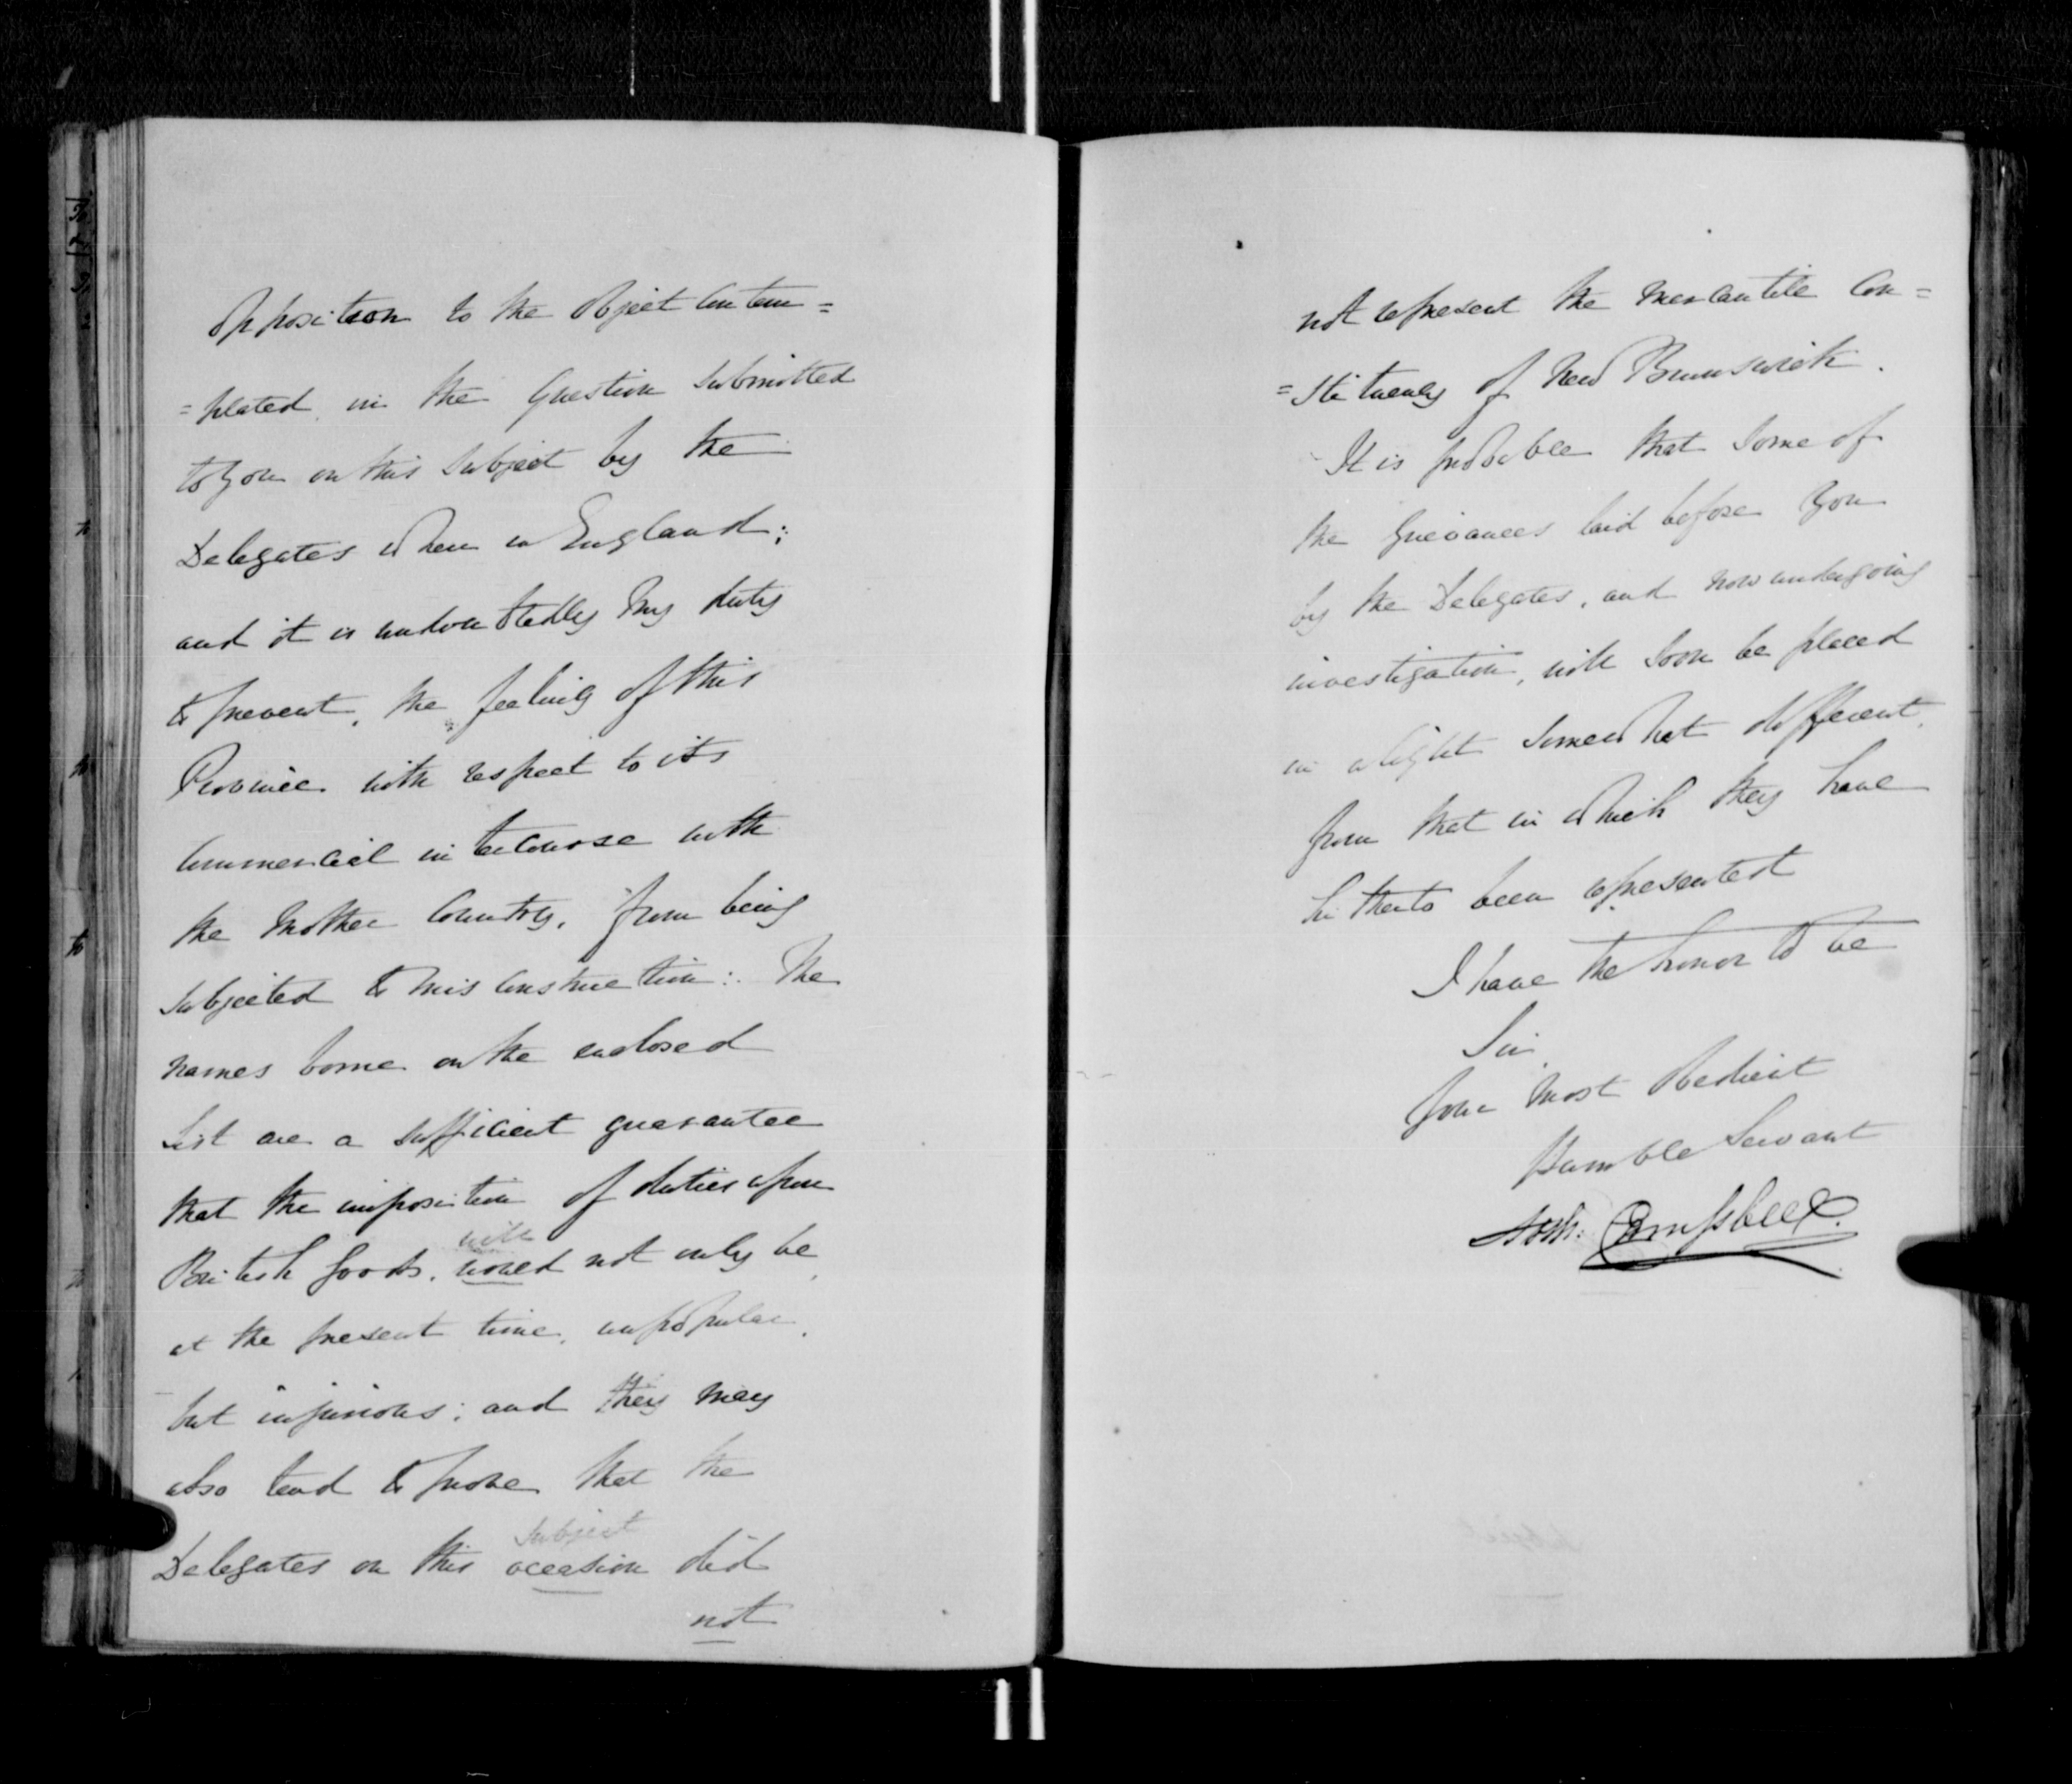 opposition to the object Contem=
=plated, in the Question submitted
to you on this subject by the
Delegates when in England;
and it is undoubtedly my duty
to prevent, the feeling of this
Province with respect to its
Commercial intercourse with
the Mother Country, from being
subjected to misconstruction: The
names borne on the enclosed
List are a sufficient guarantee
that the imposition of duties upon
will
British goods, would not only be,
at the present time, unpopular,
but injurious; and they may
also tend to prove that the
subject
Delegates on this occasion did
not
not represent the Mercantile Con=
=stituency of New Brunswick.
It is probable that some of
the Grievances laid before you
by the Delegates, and now undergoing
investigation, will soon be placed
in a light somewhat different,
from that in which they have
hitherto been represented
I have the honor to be
Sir,
Your Most Obedient
Humble Servant
Arch: Campbell.